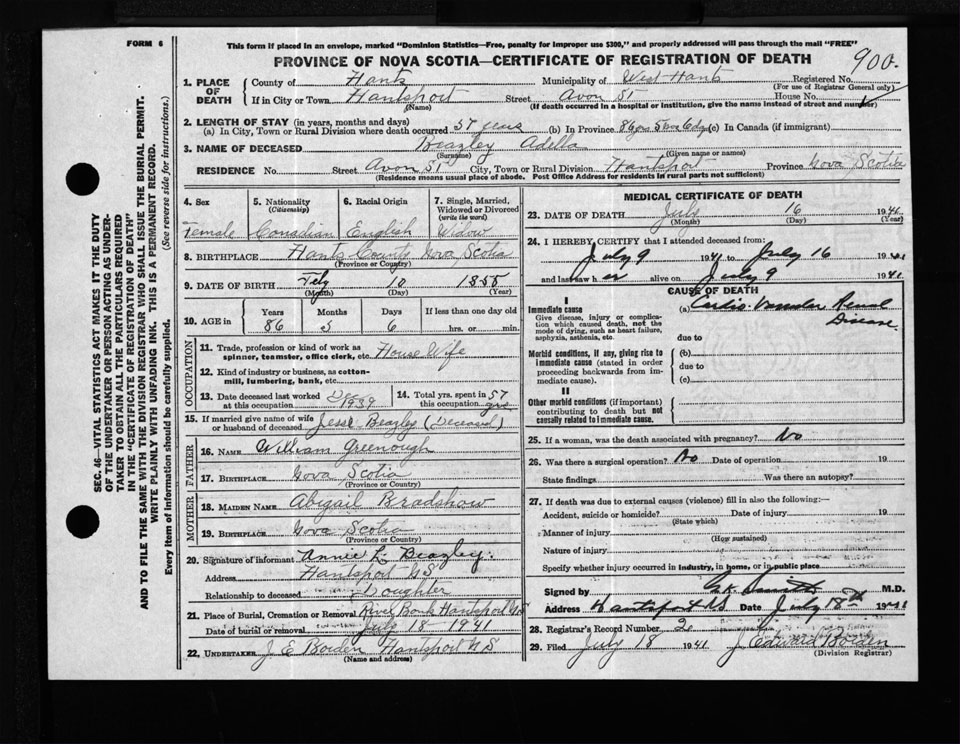 FORM 6
This form if placed in an envelope, marked "Dominion Statistics—Free, penalty for improper use $300," and properly addressed will pass through the mail "FREE"
PROVINCE OF NOVA SCOTIA—CERTIFICATE OF REGISTRATION OF DEATH
900.
SEC. 46—VITAL STATISTICS ACT MAKES IT THE DUTY
OF THE UNDERTAKER OR PERSON ACTING AS UNDER-
TAKER TO OBTAIN ALL THE PARTICULARS REQUIRED
IN THE "CERTIFICATE OF REGISTRATION OF DEATH"
AND TO FILE THE SAME WITH THE DIVISION REGISTRAR WHO SHALL ISSUE THE BURIAL PERMIT.
WRITE PLAINLY WITH UNFADING INK. THIS IS A PERMANENT RECORD.
Every item of information should be carefully supplied. (See reverse side for instructions.)
1. PLACE OF DEATH
County of Hants Municipality of West Hants Registered No.
(For use of Registrar General only)
If in City or Town Hantsport Street Avon St House No.
(Name) (If death occurred in a hospital or institution, give the name instead of street and number)
2. LENGTH OF STAY (in years, months and days)
(a) In City, Town or Rural Division where death occurred 57 years (b) In Province 86 yrs 5 mos 6 dys (c) In Canada (if immigrant)
3. NAME OF DECEASED Beazley Adella
(Surname) (Given name or names)
RESIDENCE No. Street Avon St City, Town or Rural Division Hantsport Province Nova Scotia
(Residence means usual place of abode. Post Office Address for residents in rural parts not sufficient)
4. Sex
Female
5. Nationality
(Citizenship)
Canadian
6. Racial Origin
English
7. Single, Married,
Widowed or Divorced
(write the word)
Widow
8. BIRTHPLACE Hants County Nova Scotia
(Province or Country)
9. DATE OF BIRTH 10 1855
(Month) (Day) (Year)
10. AGE in Years Months Days If less than one day old
86 5 6 hrs. or min.
OCCUPATION
11. Trade, profession or kind of work as
spinner, teamster, office clerk, etc. House Wife
12. Kind of industry or business, as cotton-
mill, lumbering, bank, etc.
13. Date deceased last worked
at this occupation 1939
14. Total yrs. spent in
this occupation 57 yrs
15. If married give name of wife
or husband of deceased Jesse Beazley (Deceased)
FATHER
16. NAME William Greenough
17. BIRTHPLACE Nova Scotia
(Province or Country)
MOTHER
18. MAIDEN NAME Abigail Bradshaw
19. BIRTHPLACE Nova Scotia
(Province or Country)
20. Signature of informant Annie L. Beazley.
Address Hantsport N S
Relationship to deceased Daughter
21. Place of Burial, Cremation or Removal River Bank Hantsport N S
Date of burial or removal July 18 - 1941
22. UNDERTAKER J E Borden Hantsport N S
(Name and address)
MEDICAL CERTIFICATE OF DEATH
23. DATE OF DEATH July 16 1941
(Month) (Day) (Year)
24. I HEREBY CERTIFY that I attended deceased from:
July 9 1941 to July 16 1941
and last saw h er alive on July 9 1941
CAUSE OF DEATH
I
Immediate cause
Give disease, injury or complica-
tion which caused death, not the
mode of dying, such as heart failure,
asphyxia, asthenia, etc.
(a) Cardio-Vascular Renal
Disease
due to
Morbid conditions, if any, giving rise to
immediate cause (stated in order
proceeding backwards from im-
mediate cause).
(b)
due to
(c)
II
Other morbid conditions (if important)
contributing to death but not
causally related to immediate cause.
25. If a woman, was the death associated with pregnancy? No
26. Was there a surgical operation? No Date of operation 19
State findings Was there an autopsy?
27. If death was due to external causes (violence) fill in also the following:—
Accident, suicide or homicide? Date of injury 19
(State which)
Manner of injury
(How sustained)
Nature of injury
Specify whether injury occurred in industry, in home, or in public place
Signed by M.D.
Address Hantsport NS Date July 18th 1941
28. Registrar's Record Number 2
29. Filed July 18 1941 J Edward Borden
(Division Registrar)